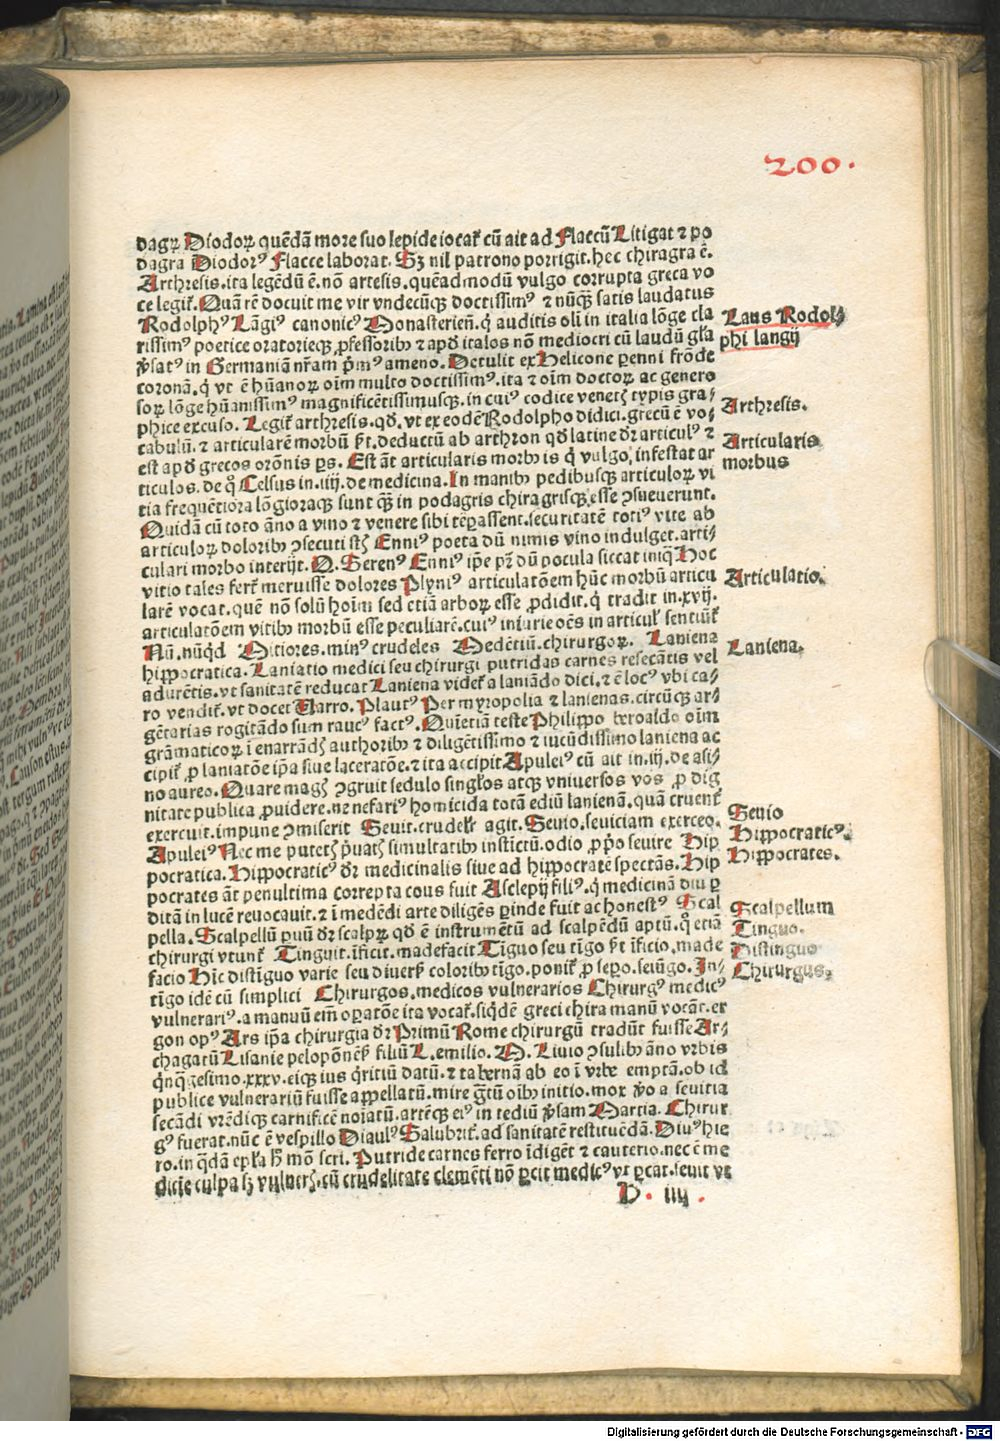 200.
dagrꝝ Diodorꝝ quēdā more suo lepide iocat̄ cū ait ad Flaccū Litigat ⁊ po
dagra Diodorꝰ Flacce laborat. Sꝫ nil patrono porrigit. hec chiragra ē.
Arthresis. ita legēdū ē. nō artesis. quēadmodū vulgo corrupta greca vo
ce legit̄. Quā rē docuit me vir vndecūqꝫ doctissimꝰ ⁊ nūqꝫ satis laudatus
Rodolphꝰ Lāgiꝰ canonicꝰ Monasterien̄. q̇ auditis oli in italia lōge cla
rissimꝰ poetice oratorieqꝫ ꝓfessoribꝫ ⁊ apd̄ italos nō mediocri cū laudū gl̄a
v̄satꝰ in Germaniā nr̄am p̄mꝰ ameno. Detulit ex Helicone perñi frōde
coronā. q̇ vt ē hūanorꝝ oīm multo doctissimꝰ. ita ⁊ oīm doctorꝝ ac genero
sorꝝ lōge hūanissimꝰ magnificētissimusqꝫ. in cuiꝰ codice venetꝭ typis gra⸗
phice excuso. Legit̄ arthresis. qd̄. vt ex eodē Rodolpho didici. grecū ē vo⸗
cabulū. ⁊ articularē morbū sr̄t. deductū ab arthron qd̄ latine dr̄ articulꝰ ⁊
est apd̄ grecos orōnis ps. Est āt articularis morbꝰ is q̇ vulgo infestat ar
ticulos. de q̊ Celsus in .iiij. de medicina. In manibꝰ pedibusqꝫ articulorꝝ vi
tia frequētiora lōgioraqꝫ sunt qꝫ in podagris chiragrisqꝫ esse ꝯsueuerunt.
Quidā cū toto āno a vino ⁊ venere sibi tēꝑassent. securitatē totiꝰ vite ab
articulorꝝ doloribꝫ ꝯsecuti st̄ Enniꝰ poeta dū nimis vino indulget. arti⸗
culari morbo interijt. Q. Serenꝰ Enniꝰ ip̄e pr̄ dū pocula siccat iniqꝫ Hoc
vitio tales fert̄ meruisse dolores Plyniꝰ articulatōem hūc morbū articu
larē vocat. quē nō solū hoīm sed etiā arborꝝ esse ꝓdidit. q̇ tradit in .xvij.
articulatōem vitibꝫ morbū esse peculiarē. cuiꝰ iniurie oēs in articul̄ sentiūt̄
Nū. nūqd Mitiores. minꝰ crudeles Medētiū. chirurgorꝝ. Laniena
hippocratica. Laniatio medici seu chirurgi putridas carnes resecātis vel
adurētis. vt sanitatē reducat Laniena videt̄ a laniādo dici. ⁊ ē locꝰ vbi ca⸗
ro vendit̄. vt docet Varro. Plautꝰ Per myropolia ⁊ lanienas. circūqꝫ ar⸗
gētarias rogitādo sum raucꝰ factꝰ. Quietiā teste Philippo beroaldo oīm
grāmaticorꝝ ī enarrādꝭ authoribꝫ ⁊ diligētissimo ⁊ iucūdissimo laniena ac
cipit̄ ꝓ laniatōe ip̄a siue laceratōe. ⁊ ita accipit Apuleiꝰ cū ait in .iij. de asi⸗
no aureo. Quare magꝭ ꝯgruit sedulo singl̄os atqꝫ vniuersos vos ꝓ dig
nitate publica ꝓuidere. ne nefariꝰ homicida totā ediū lanienā. quā cruent̄
exercuit. impune ꝯmiserit Seuit. crudelr̄ agit. Seuio. seuiciam exerceo.
Apuleiꝰ Nec me putetꝭ p̄uatꝭ simultatibꝫ instictū. odio ꝓp̄o seuire Hip
pocratica. Hippocraticꝰ dr̄ medicinalis siue ad hippocratē spectās. Hip
pocrates āt penultima correpta cous fuit Asclepij filiꝰ. q̇ medicinā diu ꝑ
ditā in lucē reuocauit. ⁊ ī medēdi arte diligēs ꝑinde fuit ac honestꝰ Scal
pella. Scalpellū ꝑuū dr̄ scalprꝝ qd̄ ē instrumētū ad scalpēdū aptū. q̇ etiā
chirurgi vtunt̄ Tinguit. īficit. madefacit Tiguo seu tīgo sr̄t īficio. made
facio Hīc distīguo varie seu diuers̄ coloribꝫ tīgo. ponit̄ ꝓ seꝑo. seiūgo. In⸗
tīgo idē cū simplici Chirurgos. medicos vulnerarios Chirurgꝰ medicꝰ
vulnerariꝰ. a manuū em̄ oꝑatōe ita vocat̄. siqdē greci chira manū vocāt. er
gon opꝰ Ars ip̄a chirurgia dr̄ Primū Rome chirurgū tradūt fuisse Ar⸗
chagatū Lisanie peloponēs̄ filiū L. emilio. M. Liuio ꝯsulibꝫ āno vrbis
qnqgesimo .xxxv. eiqꝫ ius q̇ritiū datū. ⁊ tabernā ab eo ī vrbe emptā. ob id
publice vulnerariū fuisse appellatū. mire gr̄tū oībꝫ initio. mox v̄o a seuitia
secādi vrēdiqꝫ carnificē noīatū. artēqꝫ eiꝰ in tediū v̄sam Martia. Chirur
gꝰ fuerat. nūc ē vespillo Diaulꝰ Salubrit̄. ad sanitatē restituēdā. Diuꝰ hie
ro. in qdā epl̄a h̄ mō scri. Putride carnes ferro īdigēt ⁊ cauterio. nec ē me
dicie culpa sꝫ vulnerꝭ. cū crudelitate clemēti nō ꝑcit medicꝰ vt ꝑcat. seuit vt
Laus Rodol⸗
phi langij
Arthresis.
Articularis
morbus
Articulatio.
Laniena.
Seuio
Hippocraticꝰ.
Hippocrates.
Scalpellum
Tinguo.
Distinguo
Chirurgus.
D. iiij.
Digitalisierung gefördert durch die Deutsche Forschungsgemeinschaft - DFG